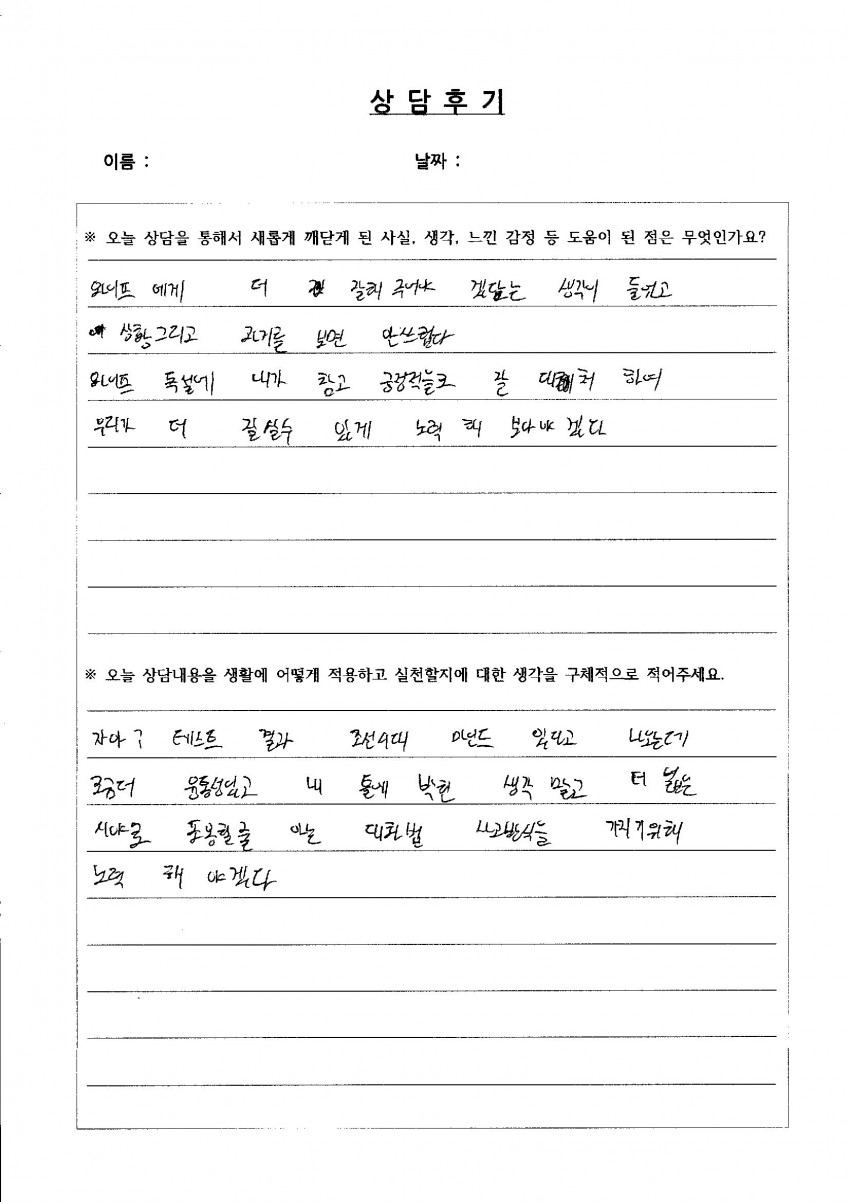 상 담 후 기
이름 :
날짜 :
※ 오늘 상담을 통해서 새롭게 깨닫게 된 사실, 생각, 느낀 감정 등 도움이 된 점은 무엇인가요?
와이프 에게 더 잘해 주어야 겠답는 생각이 들었고
상황그리고 과거를 보면 안쓰럽다
와이프 독설에 내가 참고 긍정적늘로 잘 대처 하여
우리가 더 잘살수 있게 노력 해 보다야 겠다
※ 오늘 상담내용을 생활에 어떻게 적용하고 실천할지에 대한 생각을 구체적으로 적어주세요.
자아? 테스트 결과 조선시대 마인드 있다고 나오는데
조금더 융통성있고 내 틀에 박힌 생각 말고 더 넓은
시야로 포용할줄 아는 대화법 사고방식들 가지기위해
노력 해 야겠다